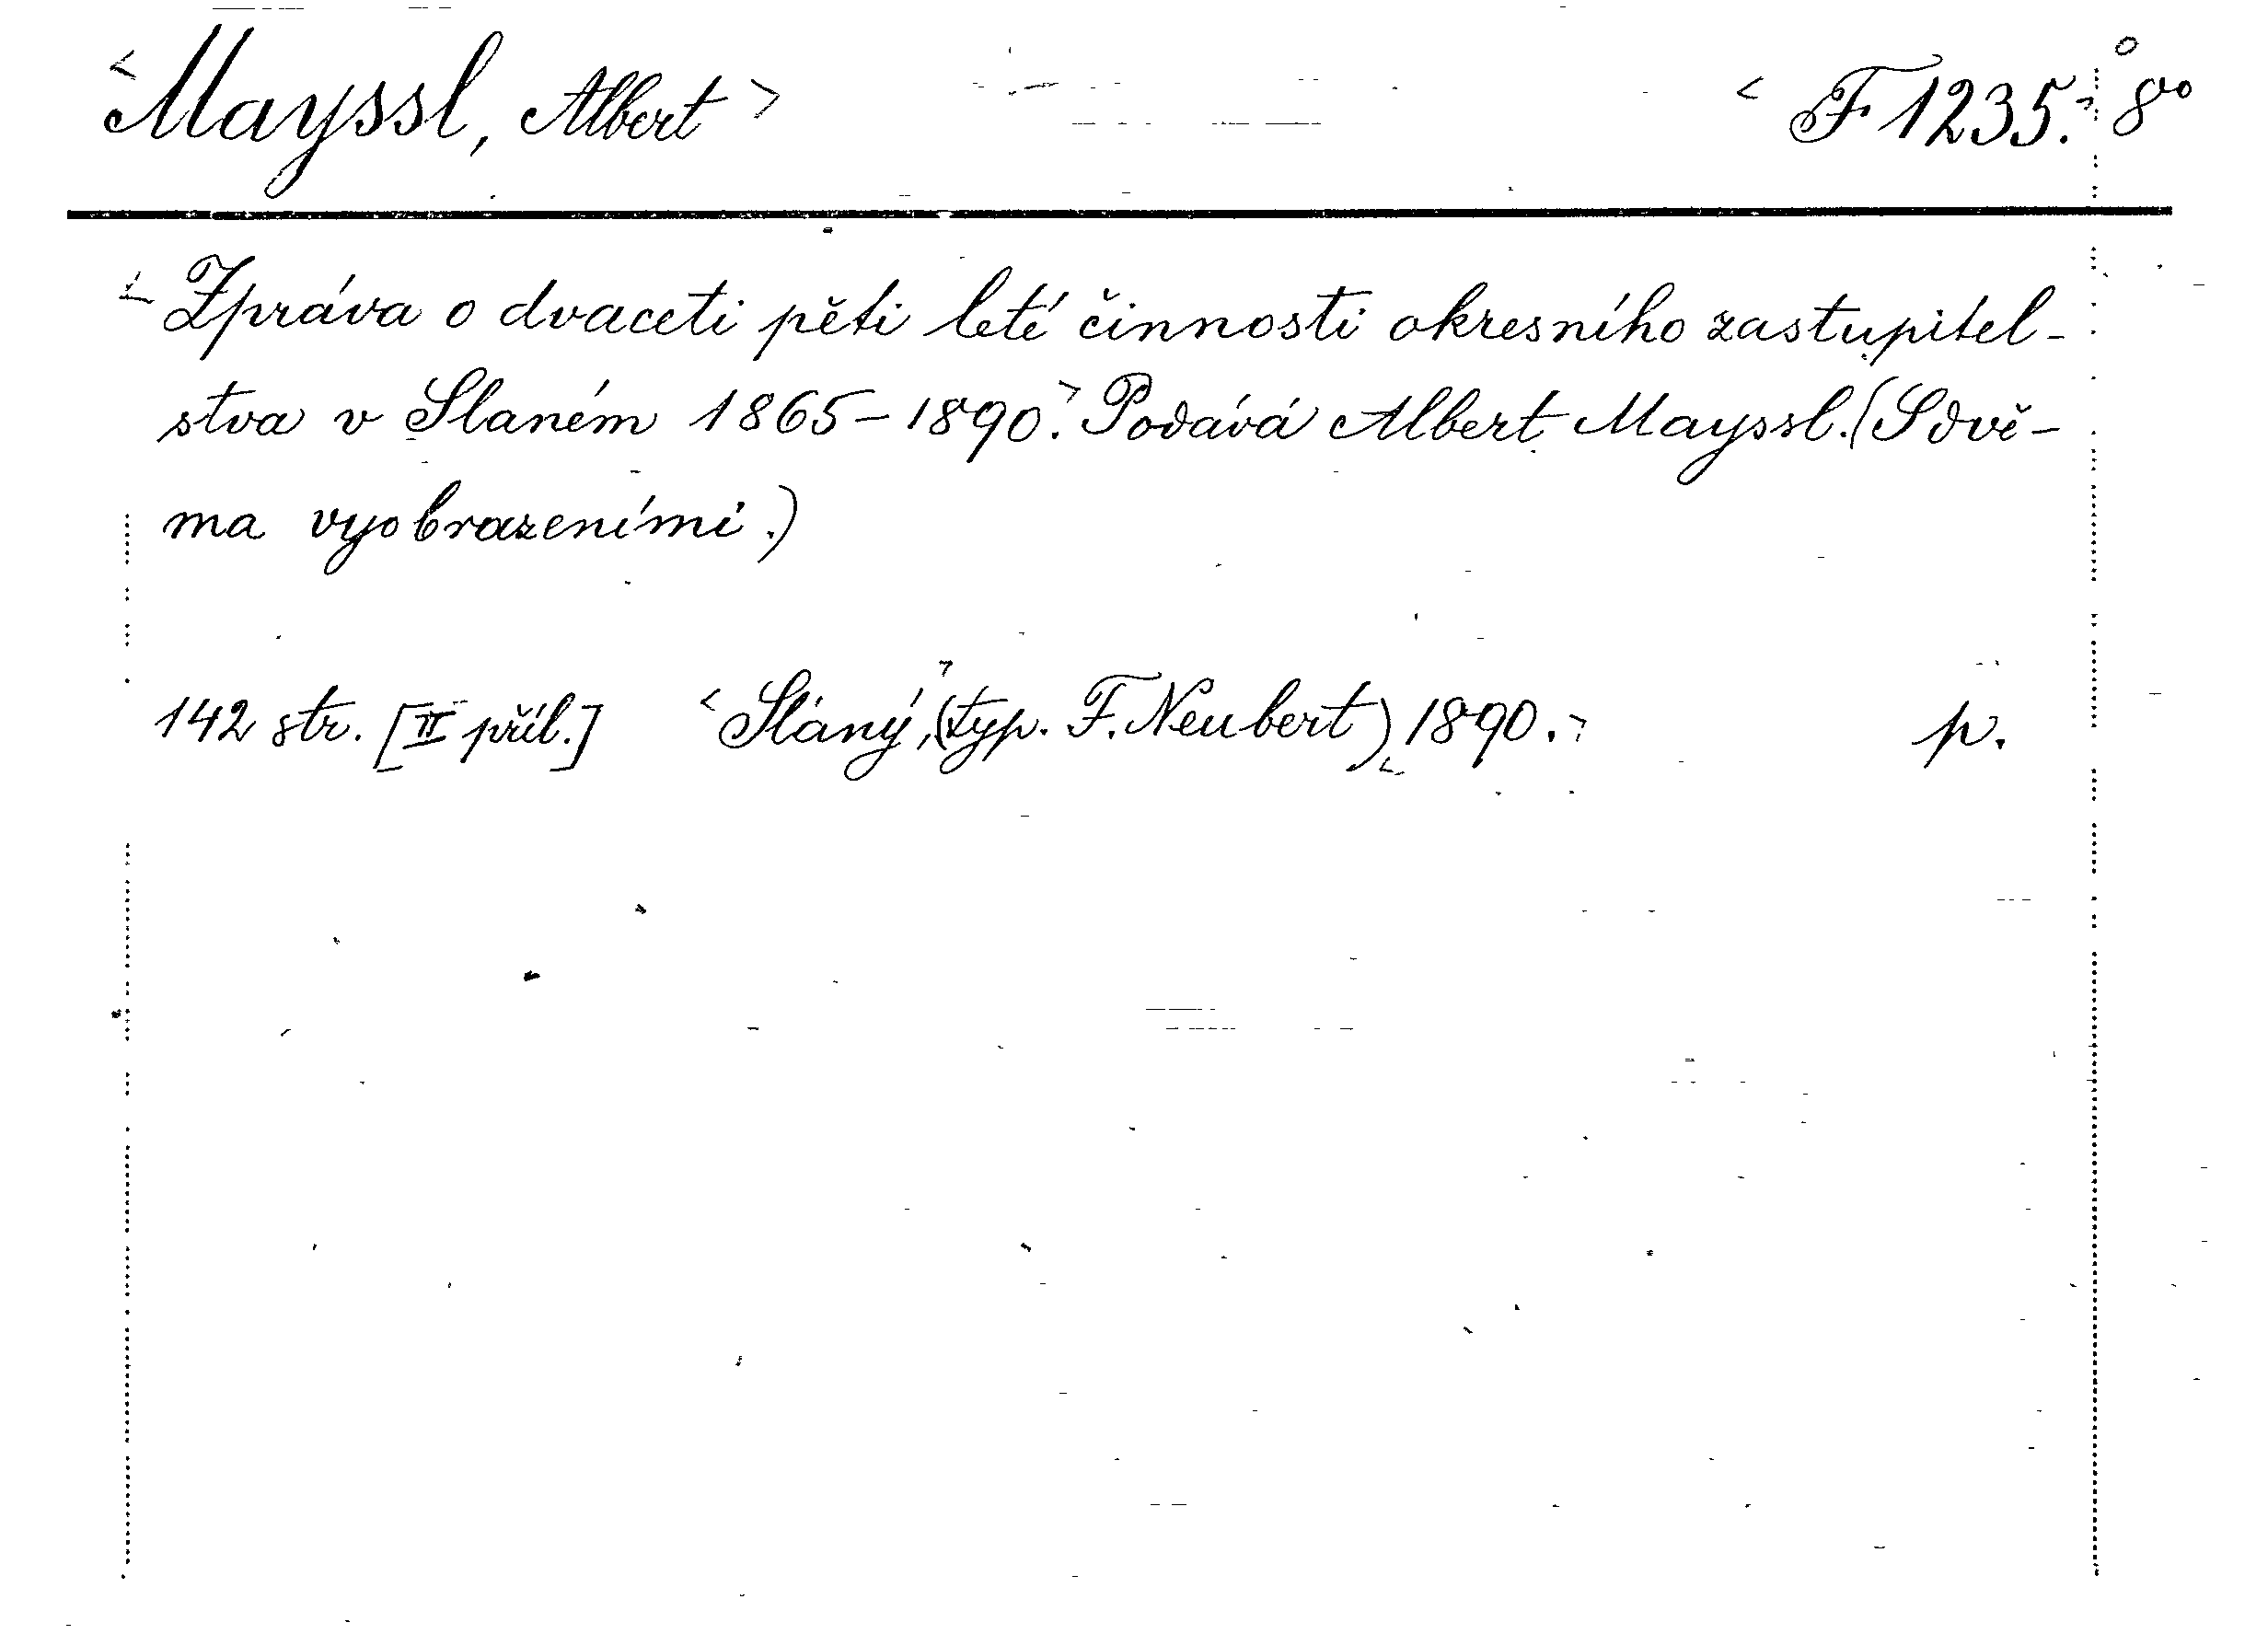 <Mayssl, Albert> <F 1235.> 8vo
<Zpráva o dvaceti pěti leté činnosti okresního zastupitel-
stva v Slaném 1865-1890.> Podává Albert Mayssl. (S dvě-
ma vyobrazeními.)
142 str. [II příl.] <Slaný,> (typ. F. Neubert) <1890.> p.